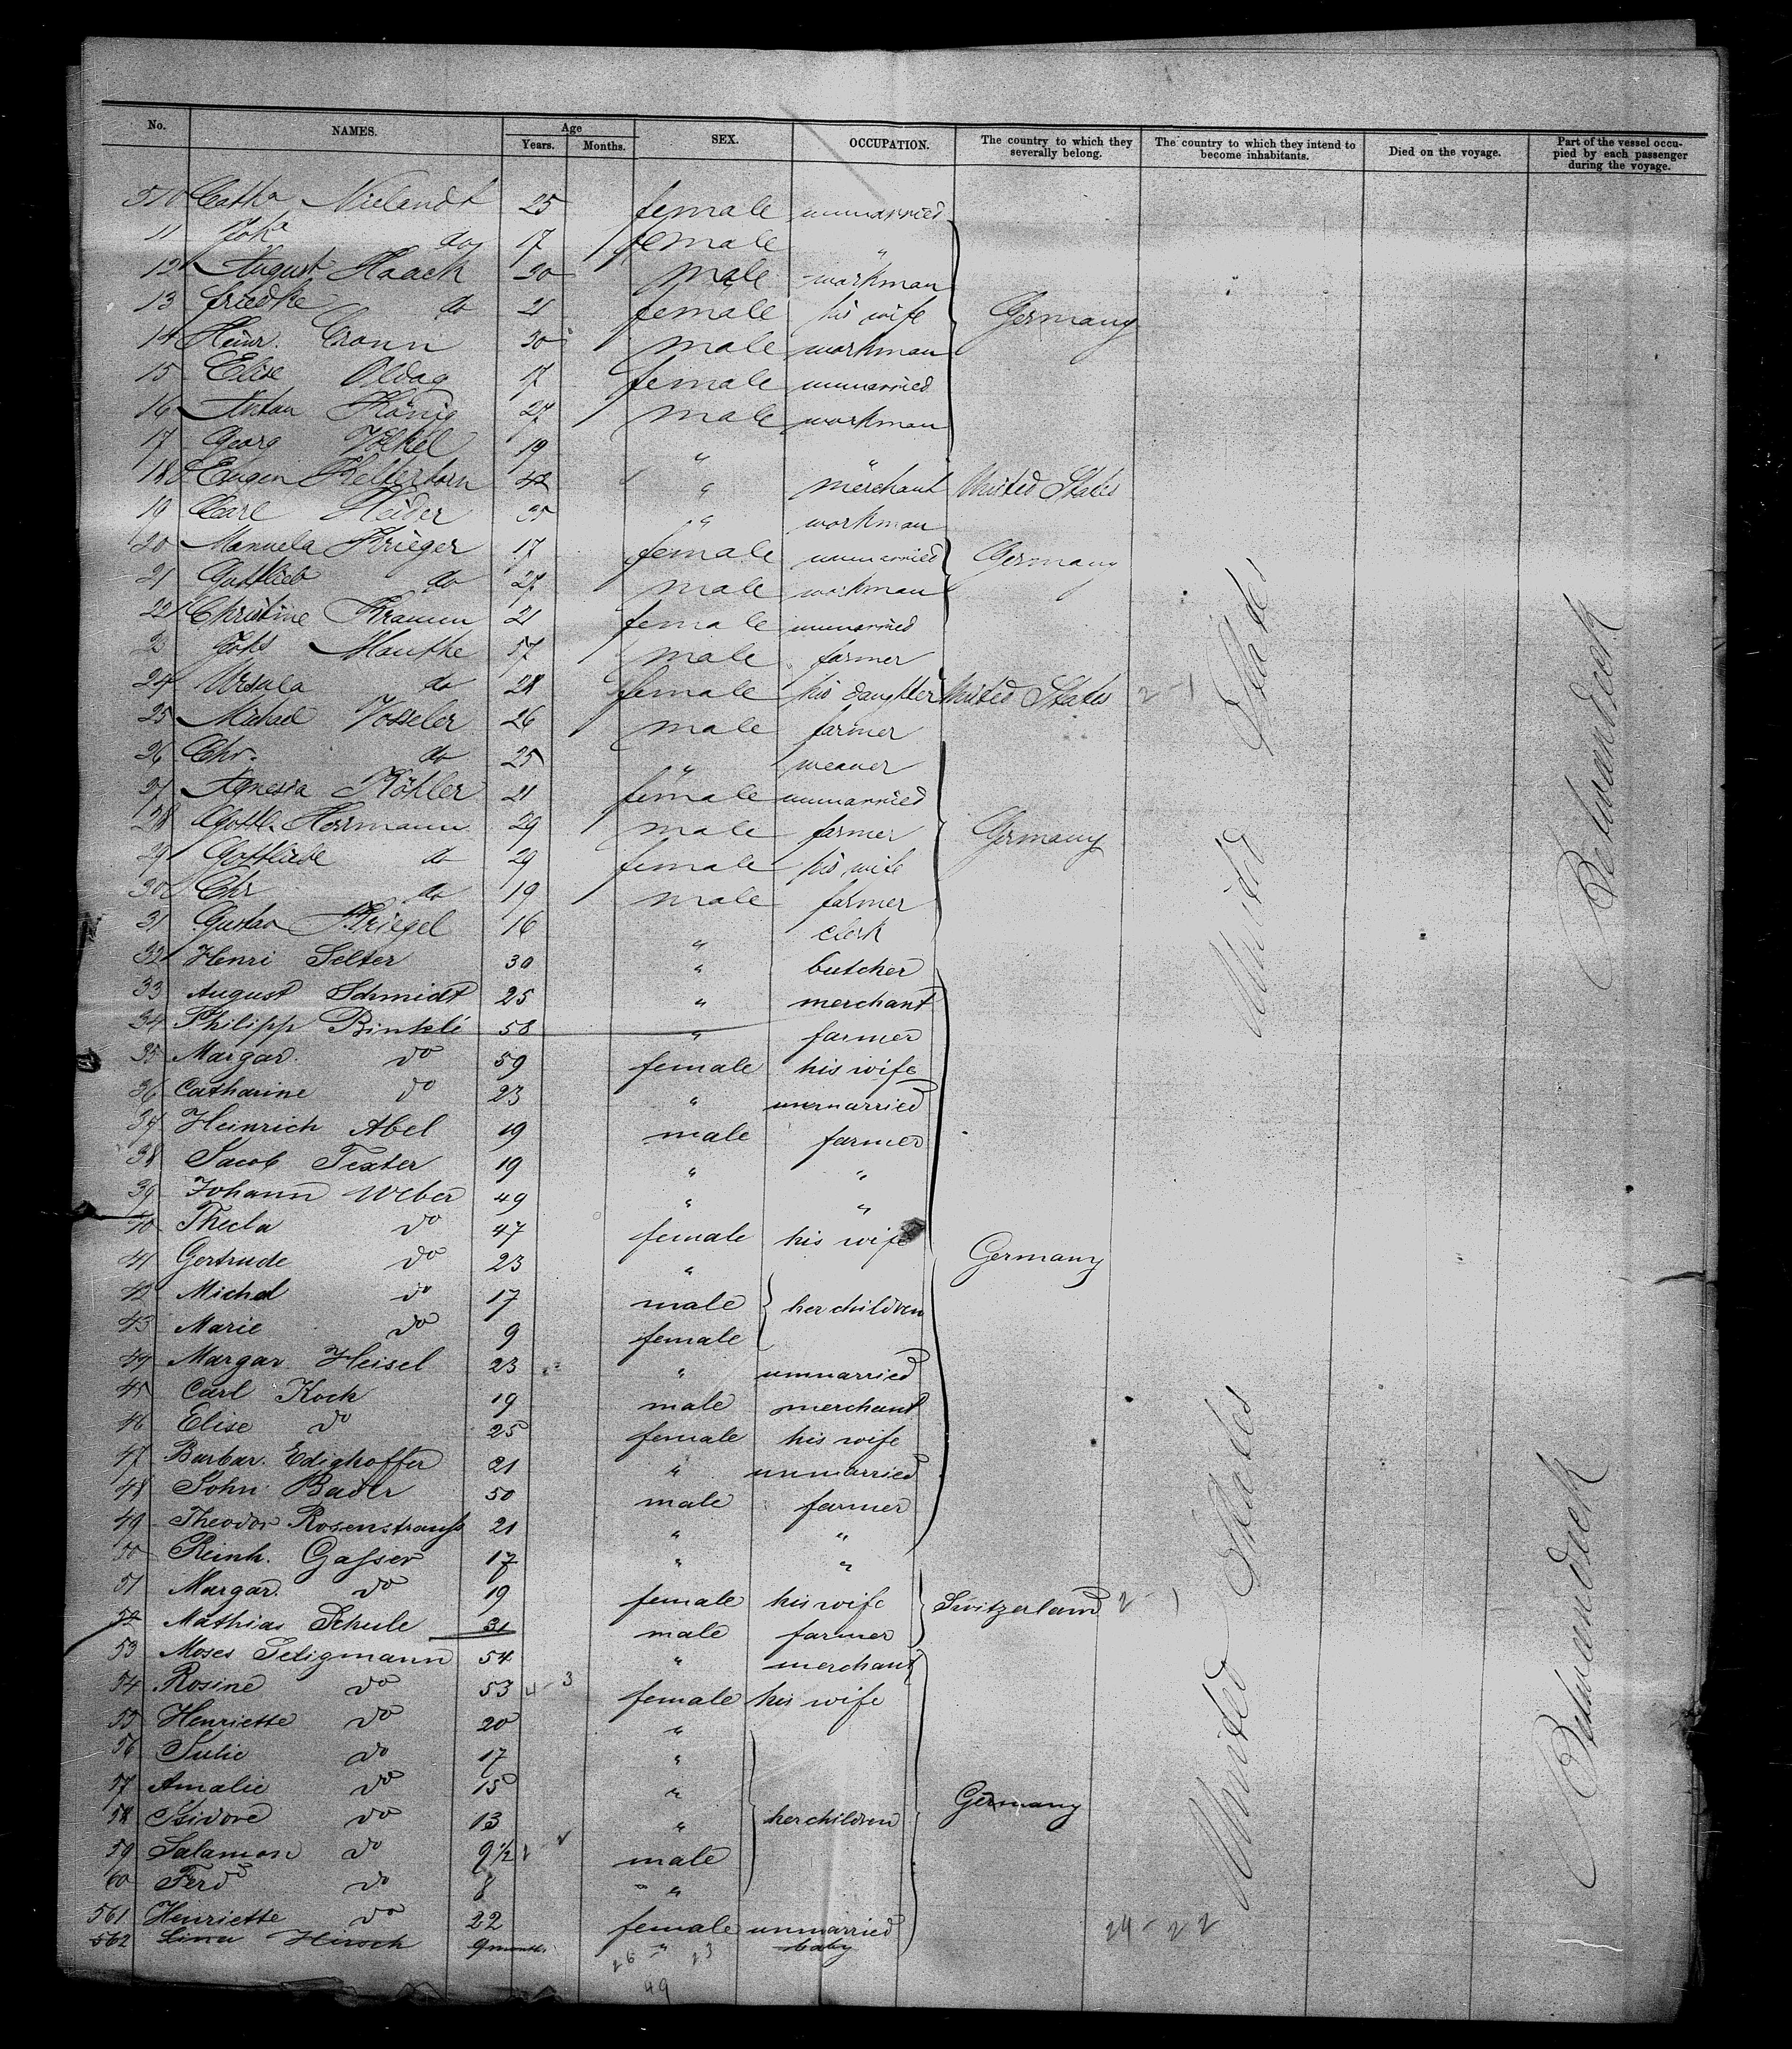 No. NAMES. Age Years. Months. SEX. OCCUPATION. The country to which they severally belong. The country to which they intend to become inhabitants. Died on the voyage. Part of the vessel occupied by each passenger during the voyage.
510 Catha Nielandt 25 female unmarried
11 Joha do 17 female "
12 August Haack 30 male workman
13 Friedke do 21 female his wife Germany
14 Heinr. Cronn 30 male workman
15 Elise Oldag 17 female unmarried
16 Anton König 27 male workman
17 Georg Völkel 19 " "
18 Eugen Kelterborn 42 " merchant United States
19 Carl Heider 35 " workman
20 Manuela Krieger 17 female unmarried Germany
21 Gottlieb do 27 male workman
22 Christine Kramm 21 female unmarried
23 Johs Mauthe 57 male farmer
24 Ursula do 28 female his daughter United States 2 - 1
25 Michael Vosseler 26 male farmer
26 Chr. do 25 " weaver
27 Agnesia Köhler 21 female unmarried
28 Gottl. Herrmann 29 male farmer Germany
29 Gottliebe do 29 female his wife
30 Chr do 19 male farmer
31 Gustav Kriegel 16 " clerk
32 Henri Selter 30 " butcher
33 August Schmidt 25 " merchant
34 Philipp Binkli 58 " farmer
35 Margar. do 59 female his wife
36 Catharine do 23 " unmarried
37 Heinrich Abel 19 male farmer
38 Jacob Texter 19 " "
39 Johann Weber 49 " "
40 Thecla do 47 female his wife
41 Gertrude do 23 " Germany
42 Michel do 17 male her children
43 Marie do 9 female
44 Margar Heisel 23 " unmarried
45 Carl Koch 19 male merchant
46 Elise do 25 female his wife
47 Barbar. Edighoffer 21 " unmarried
48 John Bader 50 male farmer
49 Theodor Rosenstrauss 21 " "
50 Reinh. Gasser 17 " "
51 Margar. do 19 female his wife Switzerland 2 - 1
52 Mathias Schule 31 male farmer
53 Moses Seligmann 54 " merchant
54 Rosine do 53 4 - 3 female his wife
55 Henriette do 20 "
56 Julie do 17 "
57 Amalie do 15 " Germany
58 Isidore do 13 " her children
59 Salamon do 9 1/2 male
60 Ferd do 8 "
561 Henriette do 22 female unmarried 24 - 22
562 Lina Hirsch 9 months " baby
26 23
49
United States
United States
Betweendeck
Betweendeck